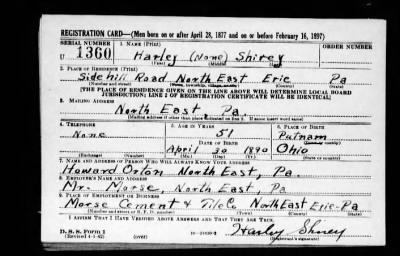 REGISTRATION CARD—(Men born on or after April 28, 1877 and on or before February 16, 1897)
SERIAL NUMBER 1. NAME (Print) ORDER NUMBER
U 1360 Harley (None) Shirey
(First) (Middle) (Last)
2. PLACE OF RESIDENCE (Print)
Sidehill Road North East Erie Pa
(Number and street) (Town, township, village, or city) (County) (State)
[THE PLACE OF RESIDENCE GIVEN ON THE LINE ABOVE WILL DETERMINE LOCAL BOARD
JURISDICTION; LINE 2 OF REGISTRATION CERTIFICATE WILL BE IDENTICAL]
3. MAILING ADDRESS
North East Pa
[Mailing address if other than place indicated on line 2. If same insert word same]
4. TELEPHONE 5. AGE IN YEARS 6. PLACE OF BIRTH
None 51 Putnam
DATE OF BIRTH (Town or county)
April 30 1890 Ohio
(Exchange) (Number) (Mo.) (Day) (Yr.) (State or country)
7. NAME AND ADDRESS OF PERSON WHO WILL ALWAYS KNOW YOUR ADDRESS
Howard Orton North East, Pa.
8. EMPLOYER'S NAME AND ADDRESS
Mr. Morse, North East, Pa
9. PLACE OF EMPLOYMENT OR BUSINESS
Morse Cement & Tile Co North East Erie-Pa
(Number and street or R. F. D. number) (Town) (County) (State)
I AFFIRM THAT I HAVE VERIFIED ABOVE ANSWERS AND THAT THEY ARE TRUE.
D. S. S. Form 1
(Revised 4-1-42) (over) Harley Shirey
(Registrant's signature)